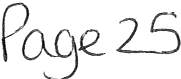 Page 25